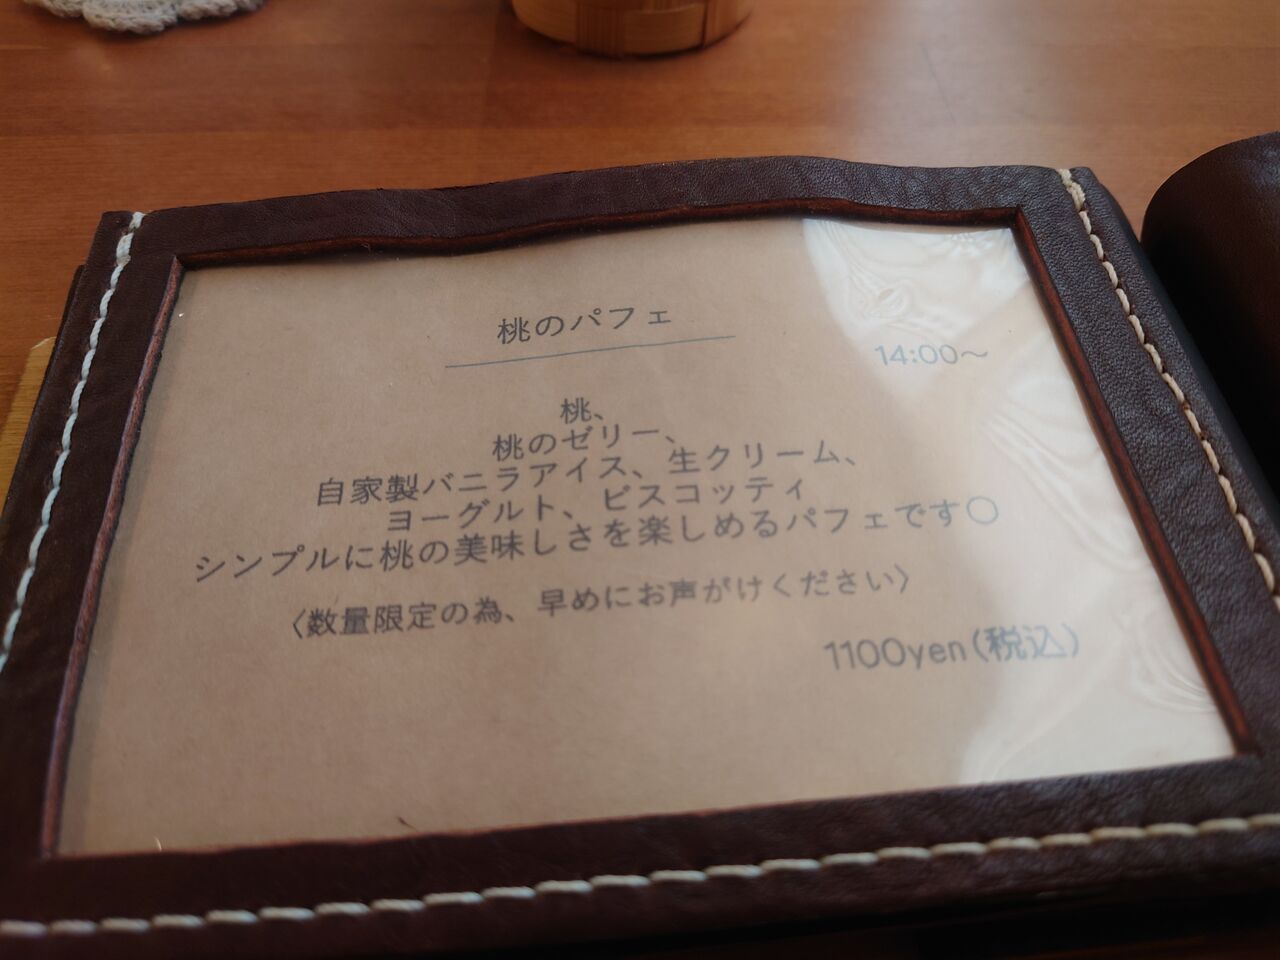 桃のパフェ
14:00〜
桃、
桃のゼリー、
自家製バニラアイス、生クリーム、
ヨーグルト、ビスコッティ
シンプルに桃の美味しさを楽しめるパフェです〇
〈数量限定の為、早めにお声がけください〉
1100yen(税込)